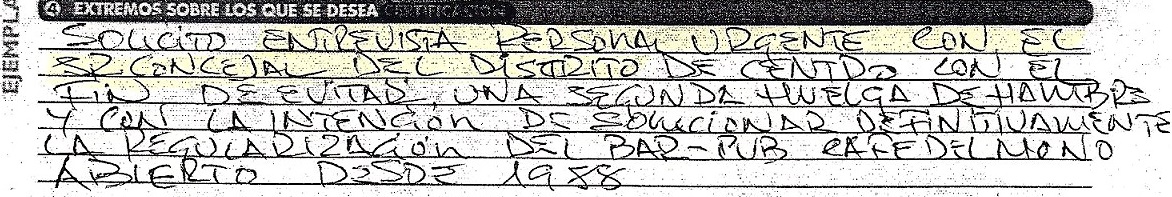 EJEMPLA
4 EXTREMOS SOBRE LOS QUE SE DESEA CERTIFICACION
SOLICITO ENTREVISTA PERSONAL URGENTE CON EL
SR. CONCEJAL DEL DISTRITO DE CENTRO CON EL
FIN DE EVITAR, UNA SEGUNDA HUELGA DE HAMBRE
Y CON LA INTENCIÓN DE SOLUCIONAR DEFINITIVAMENTE
LA REGULARIZACIÓN DEL BAR-PUB CAFE DEL MONO
ABIERTO DESDE 1988